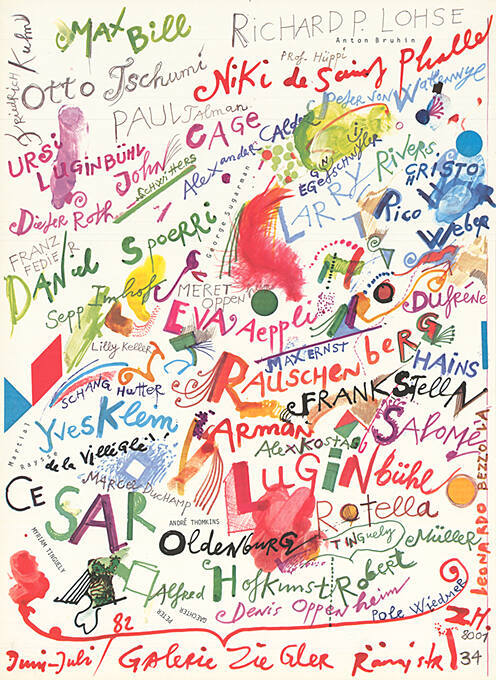 MAX Bill
RICHARD P. LOHSE
Anton Bruhin
Friedrich Kuhn
Prof. Hüppi
Otto Tschumi
Niki de Saint Phalle
Peter von Wattenwyl
PAUL Talman
CAGE
Alexander CALDER
URSi LUGiNBÜHL
JOHN
SCHWITTERS
EGGENSCHWILER
LARRY Rivers
CHRISTO
Dieter Roth
George Sugarman
Rico Weber
FRANZ FEDIER
DANiel Spoerri
Sepp Imhof
MERET OPPEN
EVA Aeppli
DUFRÊNE
Lilly Keller
MAX ERNST
RAUSCHENbeRG
HAINS
SCHANG Hutter
FRANK STELLA
Martial Rayss
Yves Klein
ARMAN
SALOMÉ
de la Villéglé!
Alex Kostas
MARCEL DUCHAMP
LUGiNbühl
CESAR
ANDRÉ THOMKINS
Rotella
OLDENBURG
TINGUELY
Müller
MYRIAM TINGUELY
Alfred Hofkunst
Robert
PETER GAECHTER
Denis Oppenheim
Pole Wiedmer
LEONARDO BEZZOLA
82
ZH.
8001
Juni-Juli / GALERIE ZieGler Rämistr 34